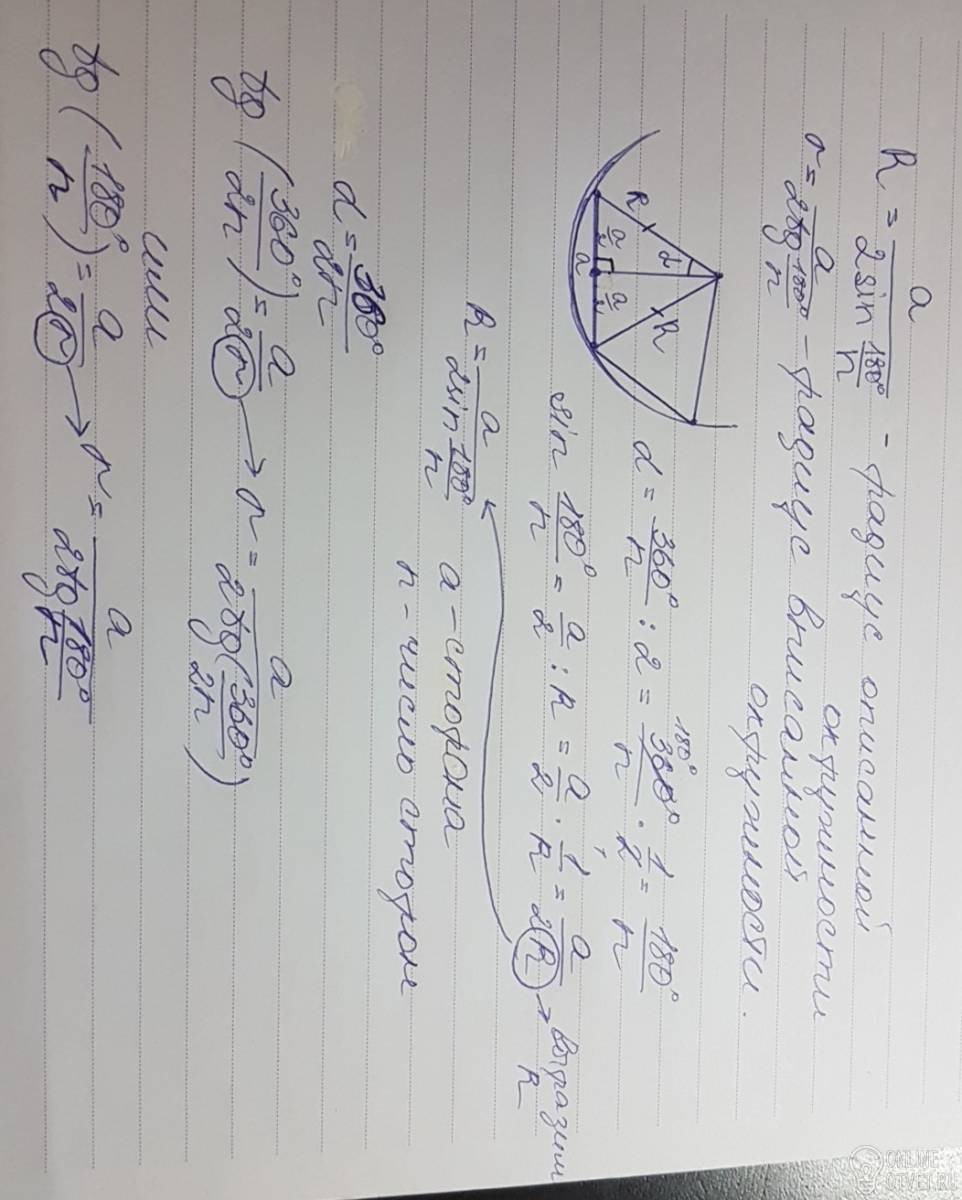 R = a / (2 sin 180°/n) - радиус описанной
окружности
r = a / (2 tg 180°/n) - радиус вписанной
окружности.
R α R
a/2 a/2
a
α = 360°/n : 2 = 360°/n · 1/2 = 180°/n
180°
sin 180°/n = a/2 : R = a/2 · 1/R = a/2R → выразим
R
R = a / (2 sin 180°/n)
a - сторона
n - число сторон
α = 360°/2n
tg (360°/2n) = a/2r → r = a / (2 tg (360°/2n))
или
tg (180°/n) = a/2r → r = a / (2 tg 180°/n)
ONLINE
OTVET.RU